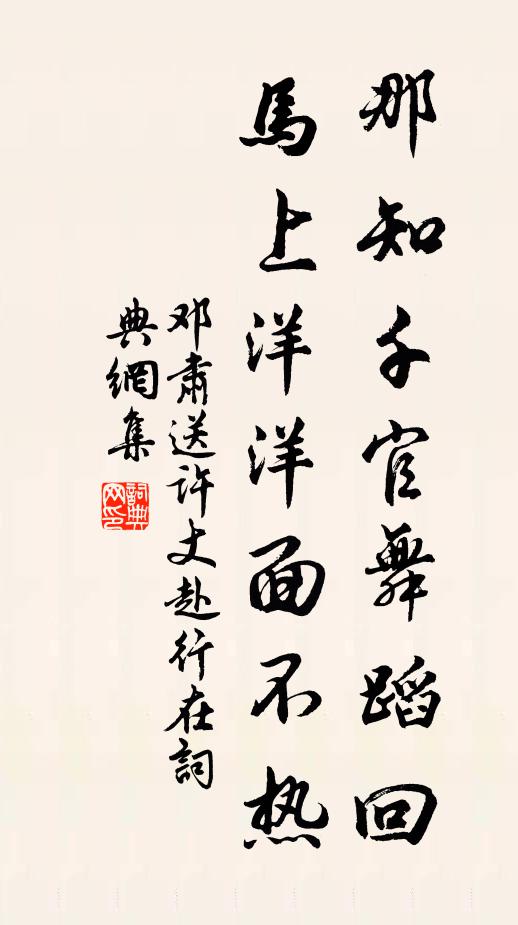 那知千官舞蹈回
馬上洋洋面不热
邓肅送许丈赴行在詞
典網集
詞典网印